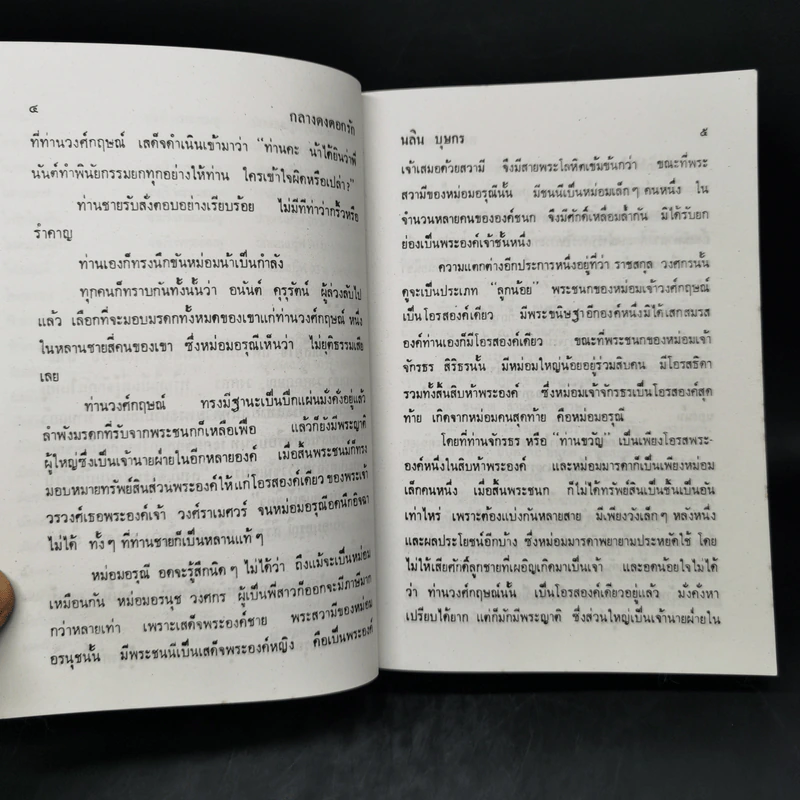 ๔
กลางดงดอกรัก
ที่ท่านวงศ์กฤษณ์ เสด็จดำเนินเข้ามาว่า "ท่านคะ น้าได้ยินว่าพี่
นันต์ทำพินัยกรรมยกทุกอย่างให้ท่าน ใครเข้าใจผิดหรือเปล่า?"
ท่านชายรับสั่งตอบอย่างเรียบร้อย ไม่มีทีท่าว่ากริ้วหรือ
รำคาญ
ท่านเองก็ทรงนึกขันหม่อมน้าเป็นกำลัง
ทุกคนก็ทราบกันทั้งนั้นว่า อนันต์ คุรุรัตน์ ผู้ล่วงลับไป
แล้ว เลือกที่จะมอบมรดกทั้งหมดของเขาแก่ท่านวงศ์กฤษณ์ หนึ่ง
ในหลานชายสี่คนของเขา ซึ่งหม่อมอรุณีเห็นว่า ไม่ยุติธรรมเสีย
เลย
ท่านวงศ์กฤษณ์ ทรงมีฐานะเป็นปึกแผ่นมั่งคั่งอยู่แล้ว
ลำพังมรดกที่รับจากพระชนกก็เหลือเฟือ แล้วก็ยังมีพระญาติ
ผู้ใหญ่ซึ่งเป็นเจ้านายฝ่ายในอีกหลายองค์ เมื่อสิ้นพระชนม์ก็ทรง
มอบหมายทรัพย์สินส่วนพระองค์ให้แก่โอรสองค์เดียว ของพระเจ้า
วรวงศ์เธอพระองค์เจ้า วงศ์ราเมศวร์ จนหม่อมอรุณีอดนึกอิจฉา
ไม่ได้ ทั้งๆ ที่ท่านชายก็เป็นหลานแท้ๆ
หม่อมอรุณี อดจะรู้สึกนิดๆ ไม่ได้ว่า ถึงแม้จะเป็นหม่อม
เหมือนกัน หม่อมอรนุช วงศกร ผู้เป็นพี่สาวก็ออกจะมีภาษีมาก
กว่าหลายเท่า เพราะเสด็จพระองค์ชาย พระสวามีของหม่อม
อรนุชนั้น มีพระชนนีเป็นเสด็จพระองค์หญิง คือเป็นพระองค์
นลิน บุษกร
๕
เจ้าเสมอด้วยสวามี จึงมีสายพระโลหิตเข้มข้นกว่า ขณะที่พระ
สวามีของหม่อมอรุณีนั้น มีชนนีเป็นหม่อมเล็กๆ คนหนึ่ง ใน
จำนวนหลายคนขององค์ชนก จึงมีศักดิ์เหลื่อมล้ำกัน มิได้รับยก
ย่องเป็นพระองค์เจ้าชั้นหนึ่ง
ความแตกต่างอีกประการหนึ่งอยู่ที่ว่า ราชสกุล วงศกรนั้น
ดูจะเป็นประเภท "ลูกน้อย" พระชนกของหม่อมเจ้าวงศ์กฤษณ์
เป็นโอรสองค์เดียว มีพระขนิษฐาอีกองค์หนึ่งมิได้เสกสมรส
องค์ท่านเองก็มีโอรสองค์เดียว ขณะที่พระชนกของหม่อมเจ้า
จักรธร สิริธรนั้น มีหม่อมใหญ่น้อยอยู่ร่วมสิบคน มีโอรสธิดา
รวมทั้งสิ้นสิบห้าพระองค์ ซึ่งหม่อมเจ้าจักรธรเป็นโอรสองค์สุด
ท้าย เกิดจากหม่อมคนสุดท้าย คือหม่อมอรุณี
โดยที่ท่านจักรธร หรือ "ท่านขวัญ" เป็นเพียงโอรสพระ-
องค์หนึ่งในสิบห้าพระองค์ และหม่อมมารดาก็เป็นเพียงหม่อม
เล็กคนหนึ่ง เมื่อสิ้นพระชนก ก็ไม่ได้ทรัพย์สินเป็นชิ้นเป็นอัน
เท่าไหร่ เพราะต้องแบ่งกันหลายสาย มีเพียงวังเล็กๆ หลังหนึ่ง
และผลประโยชน์อีกบ้าง ซึ่งหม่อมมารดาพยายามประหยัดใช้ โดย
ไม่ให้เสียศักดิ์ลูกชายที่เผอิญเกิดมาเป็นเจ้า และอดน้อยใจไม่ได้
ว่า ท่านวงศ์กฤษณ์นั้น เป็นโอรสองค์เดียวอยู่แล้ว มั่งคั่งหา
เปรียบได้ยาก แต่ก็มักมีพระญาติ ซึ่งส่วนใหญ่เป็นเจ้านายฝ่ายใน